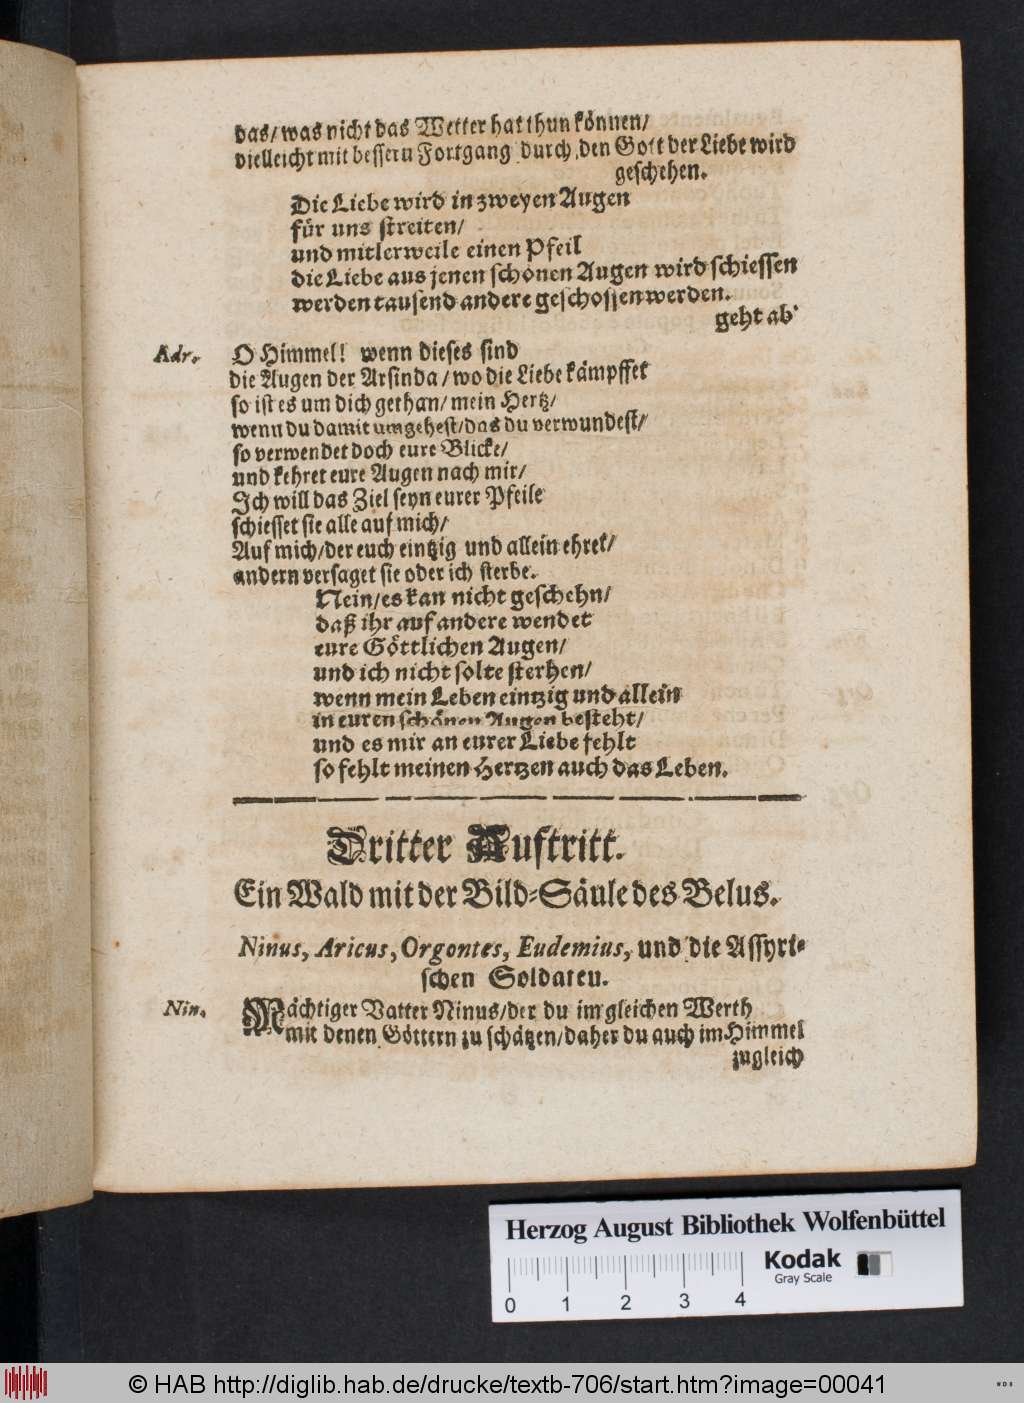 das/ was nicht das Wetter hat thun können/
vielleicht mit bessern Fortgang durch den Gott der Liebe wird
geschehen.
Die Liebe wird in zweyen Augen
für uns streiten/
und mitlerweile einen Pfeil
die Liebe aus jenen schönen Augen wird schiessen
werden tausend andere geschossen werden.
geht ab.
Adr. O Himmel! wenn dieses sind
die Augen der Arsinda/ wo die Liebe kämpffet
so ist es um dich gethan/ mein Hertz/
wenn du damit umgehest/ das du verwundest/
so verwendet doch eure Blicke/
und kehret eure Augen nach mir/
Ich will das Ziel seyn eurer Pfeile
schiesset sie alle auf mich/
Auf mich/ der euch eintzig und allein ehret/
andern versaget sie oder ich sterbe.
Nein/ es kan nicht geschehn/
daß ihr auf andere wendet
eure Göttlichen Augen/
und ich nicht solte sterben/
wenn mein Leben eintzig und allein
in euren schönen Augen besteht/
und es mir an eurer Liebe fehlt
so fehlt meinen Hertzen auch das Leben.
Dritter Auftritt.
Ein Wald mit der Bild-Säule des Belus.
Ninus, Aricus, Orgontes, Eudemius, und die Assyri-
schen Soldaten.
Nin. Mächtiger Vatter Ninus/ der du im gleichen Werth
mit denen Göttern zu schätzen/ daher du auch im Himmel
zugleich
Herzog August Bibliothek Wolfenbüttel
Kodak
Gray Scale
0 1 2 3 4
© HAB http://diglib.hab.de/drucke/textb-706/start.htm?image=00041